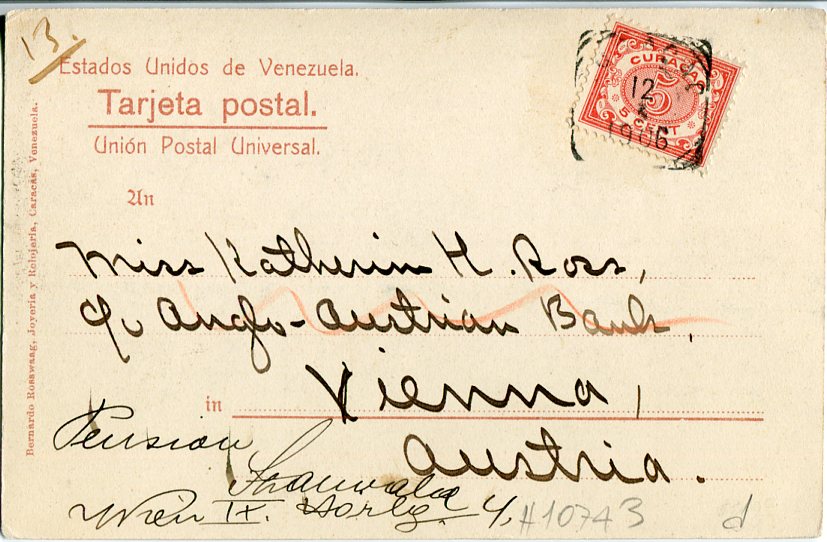 13.
Estados Unidos de Venezuela.
Tarjeta postal.
Unión Postal Universal.
CURAÇAO
5
5 CENT
12
1906
An
Miss Katherin H. Ross,
c/o Anglo-Austrian Bank,
in Vienna,
Austria.
Pension
Wien IX. 4,
#10743 d
Bernardo Rosswaag, Joyería y Relojería, Carácas, Venezuela.